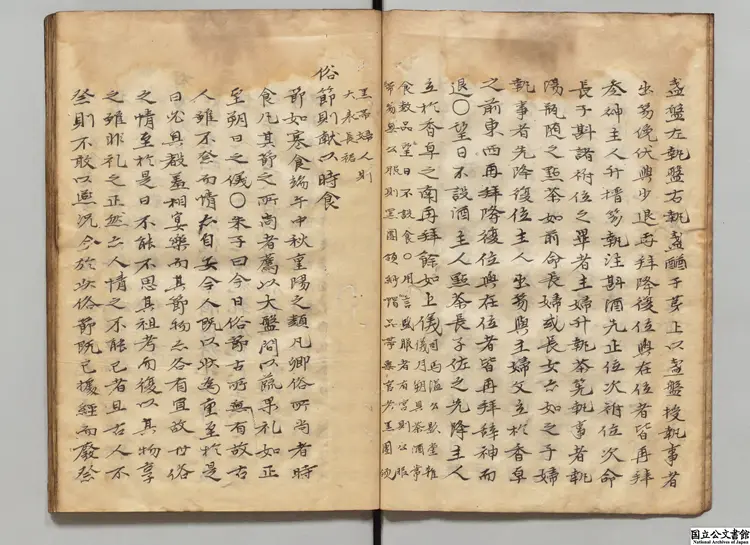 盞盤左執盤右執盞酹于茅上以盞盤授執事者
出笏俛伏興少退再拜降復位與在位者皆再拜
參神主人升搢笏執注斟酒先正位次祔位次命
長子斟諸祔位之卑者主婦升執茶筅執事者執
湯瓶随之點茶如前命長婦或長女亦如之子婦
執事者先降復位主人出笏與主婦分立於香卓
之前東西再拜降復位與在位者皆再拜辞神而
退〇望日不設酒主人點茶長子佐之先降主人
立於香卓之南再拜餘如上儀司馬温公影堂雜儀月朔具茶酒常
食数品望日不設食〇用言盛服者有官則公服
帶笏無公服則黒團領紗帽品帶無官者黒團領
黒帶婦人則
大衣長裙
俗節則献以時食
節如寒食端午中秋重陽之類凡鄉俗所尚者時
食凡其節之所尚者薦以大盤間以蔬果礼如正
至朔日之儀〇朱子曰今日俗節古所無有故古
人雖不祭而情亦自安今人既以此為重至於是
日必具殽羞相宴樂而其節物亦各有宜故世俗
之情至於是日不能不思其祖考而復以其物享
之雖非礼之正然亦人情之不能已者且古人不
祭則不敢以燕況今於此俗節既已據經而廢祭
国立公文書館
National Archives of Japan